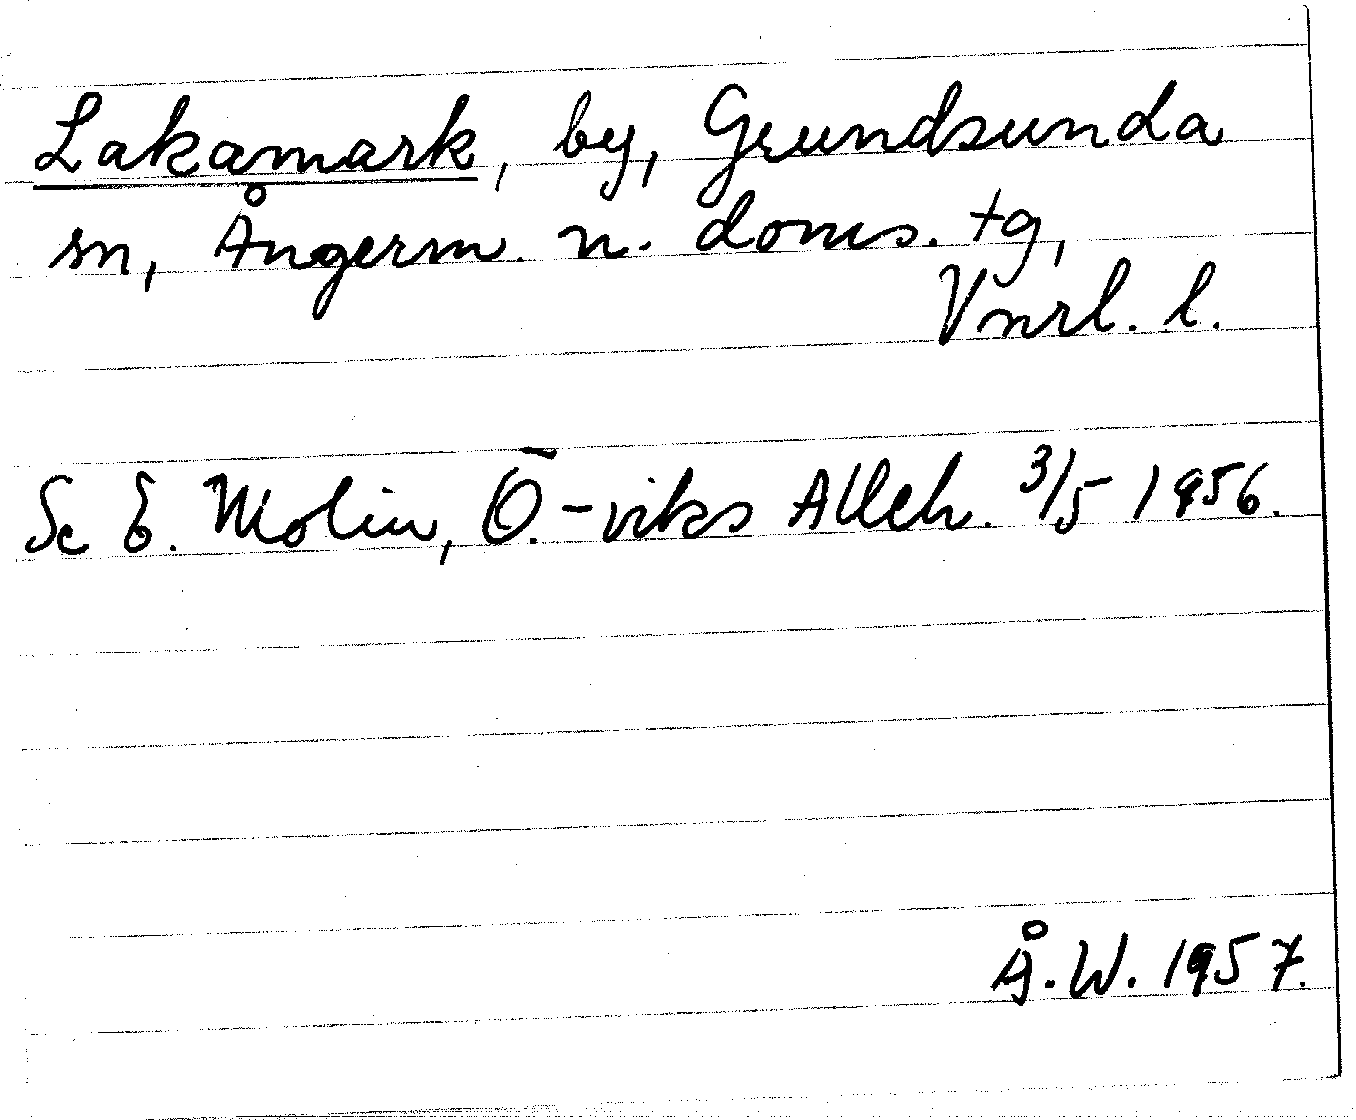 Lakamark, by, Grundsunda
sn, Ångerm. n. doms. tg,
Vnrl. l.
Se E. Molin, Ö.-viks Alleh. 3/5 1956.
Å.W. 1957.